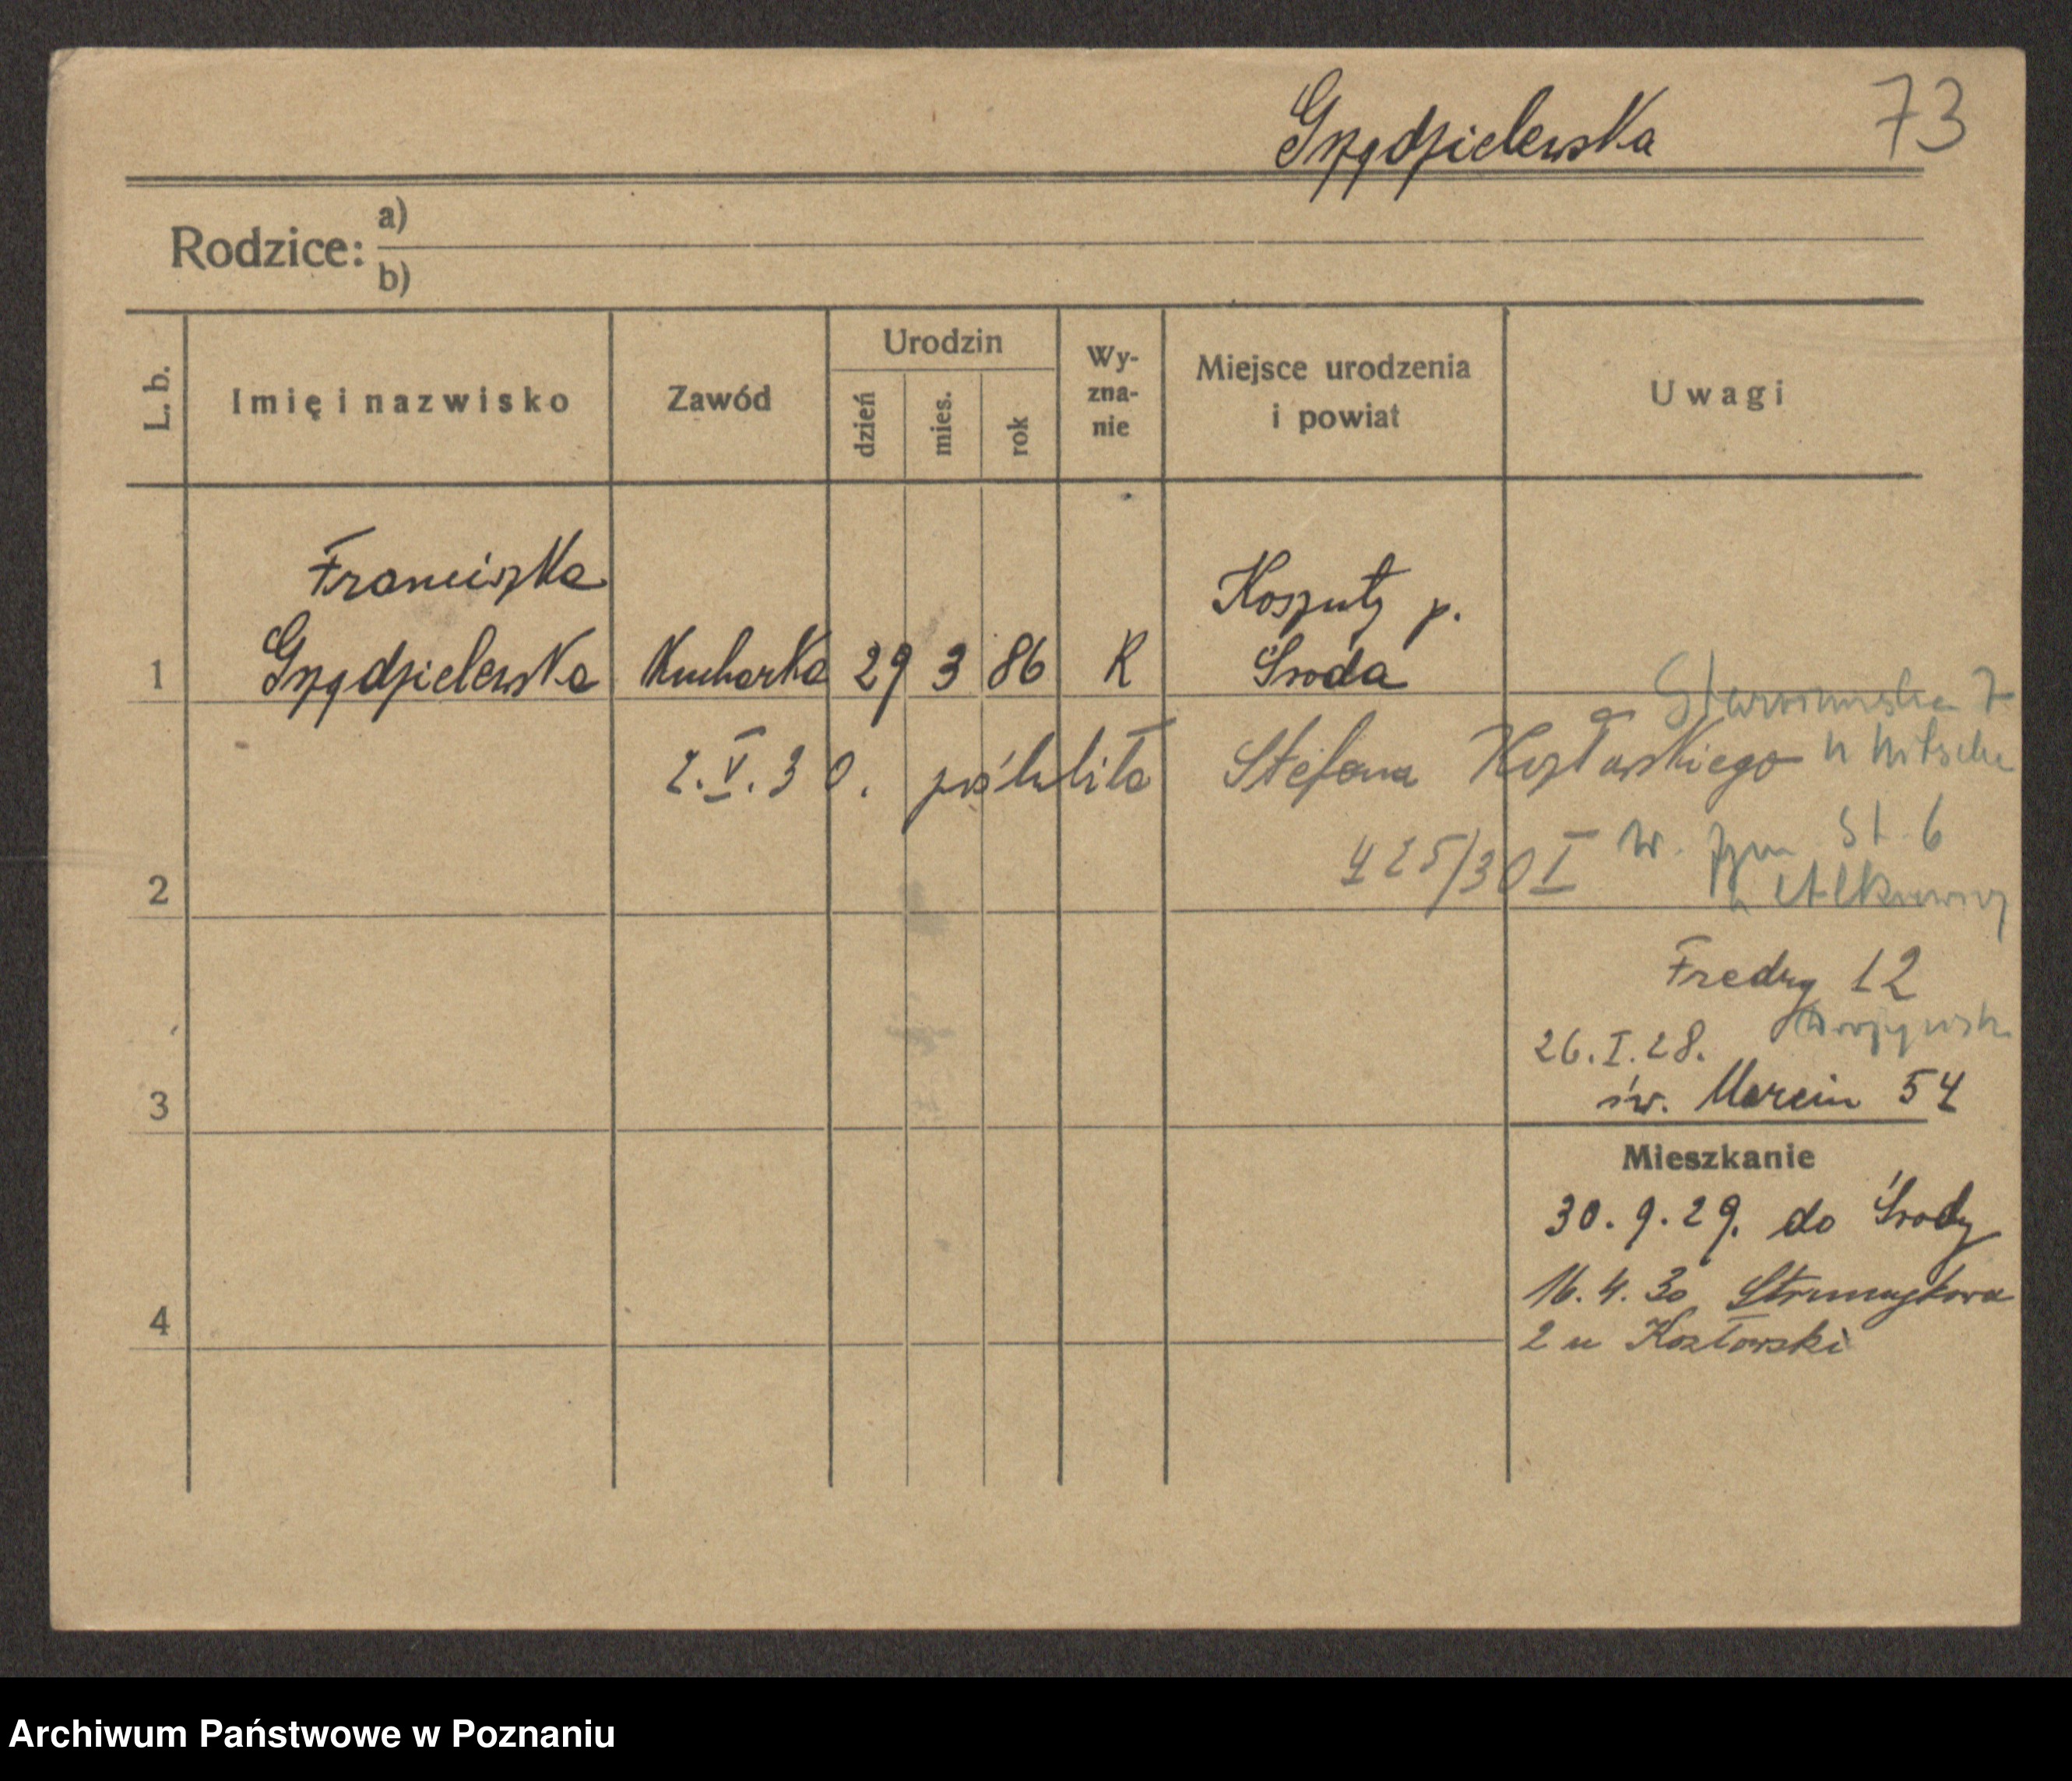 Grządzielewska 73
Rodzice: a)
b)
L. b.
Imię i nazwisko
Zawód
Urodzin
dzień
mies.
rok
Wy-
zna-
nie
Miejsce urodzenia
i powiat
Uwagi
Franciszka
Grządzielewska
Kucharka
29
3
86
K
Koszuty p.
Środa
1
2.V.30. poślubiła Stefana Kozłowskiego
425/30 I
St. 6
2
Fredry 12
26.I.28.
św. Marcin 54
3
Mieszkanie
30.9.29. do Środy
16.4.30 Strumykowa
2 u Kozłowski
4
Archiwum Państwowe w Poznaniu